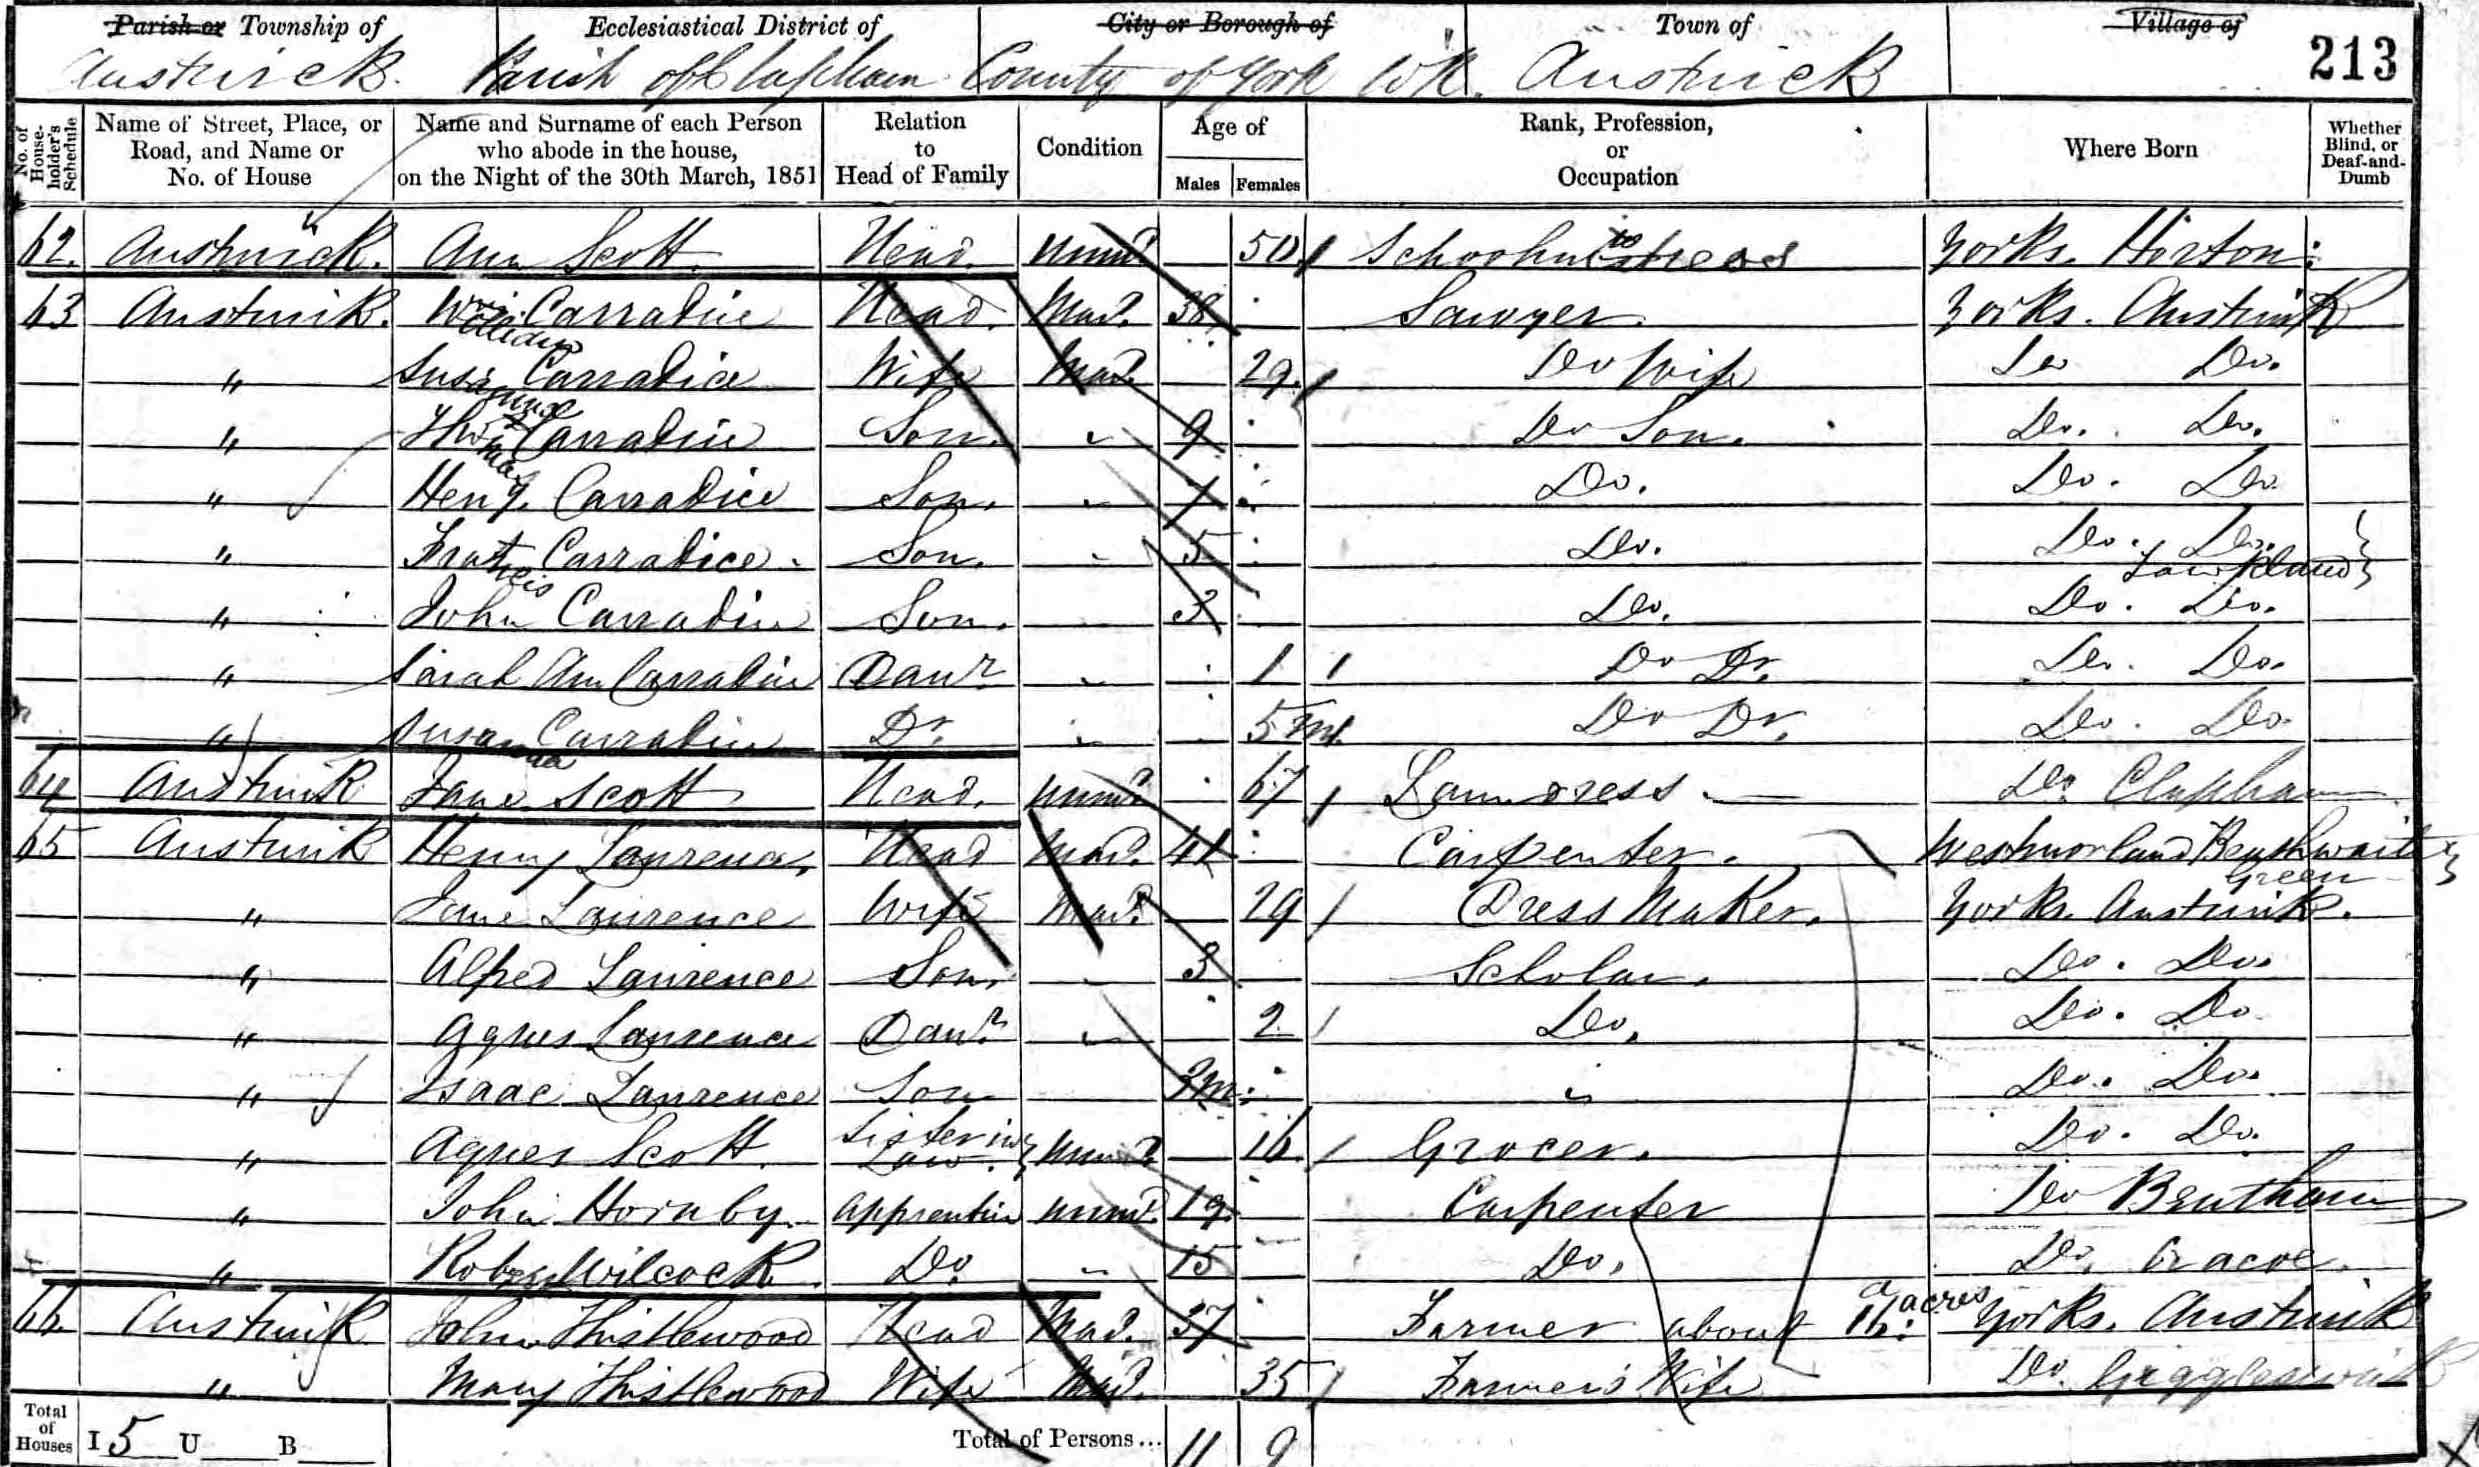 Parish or Township of Ecclesiastical District of City or Borough of Town of Village of
Austwick. Parish of Clapham County of York W.R. Austwick 213
No. of House-holder's Schedule
Name of Street, Place, or Road, and Name or No. of House
Name and Surname of each Person who abode in the house, on the Night of the 30th March, 1851
Relation to Head of Family
Condition
Age of
Males Females
Rank, Profession, or Occupation
Where Born
Whether Blind, or Deaf-and-Dumb
62. Austwick. Ann Scott. Head. Unmd. 50 Schoolmistress Yorks. Horton
63 Austwick. Wm. Carradice Head. Mard. 38 Sawyer. Yorks. Austwick
William
" Susa Carradice Wife Mard. 29 Do Wife Do Do.
" Thos Carradice Son. " 9 Do Son. Do. Do.
" Heny. Carradice Son. " 7 Do. Do. Do.
" Francis Carradice Son. " 5 Do. Do. Do.
Lawkland
" John Carradice Son. 3 Do. Do. Do.
" Sarah Ann Carradice Daur. " 1 Do Dr. Do. Do.
" Susanna Carradice Dr. " 5 m. Do Dr. Do. Do.
64 Austwick Jane Scott Head. Unmd. 67 Laundress Do. Clapham
65 Austwick Henry Laurence Head Mard. 41 Carpenter. Westmorland
Green
" Jane Laurence Wife Mard. 29 Dress Maker. Yorks. Austwick.
" Alfred Laurence Son. " 3 Scholar. Do. Do.
" Agnes Laurence Daur. " 2 Do. Do. Do.
" Isaac Laurence Son 3m " Do. Do.
" Agnes Scott Sister in Law. Unmd. 16 Grocer. Do. Do.
" John Hornby. Apprentice Unmd. 19 Carpenter Do Bentham
" Robert Wilcock Do. " 15 Do. Do. Cracoe.
66. Austwick John Thistlewood Head Mard. 37 Farmer about 16 acres Yorks. Austwick
" Mary Thistlewood Wife Mard. 35 Farmer's Wife Do. Giggleswick
Total of Houses I 5 U B Total of Persons... 11 9